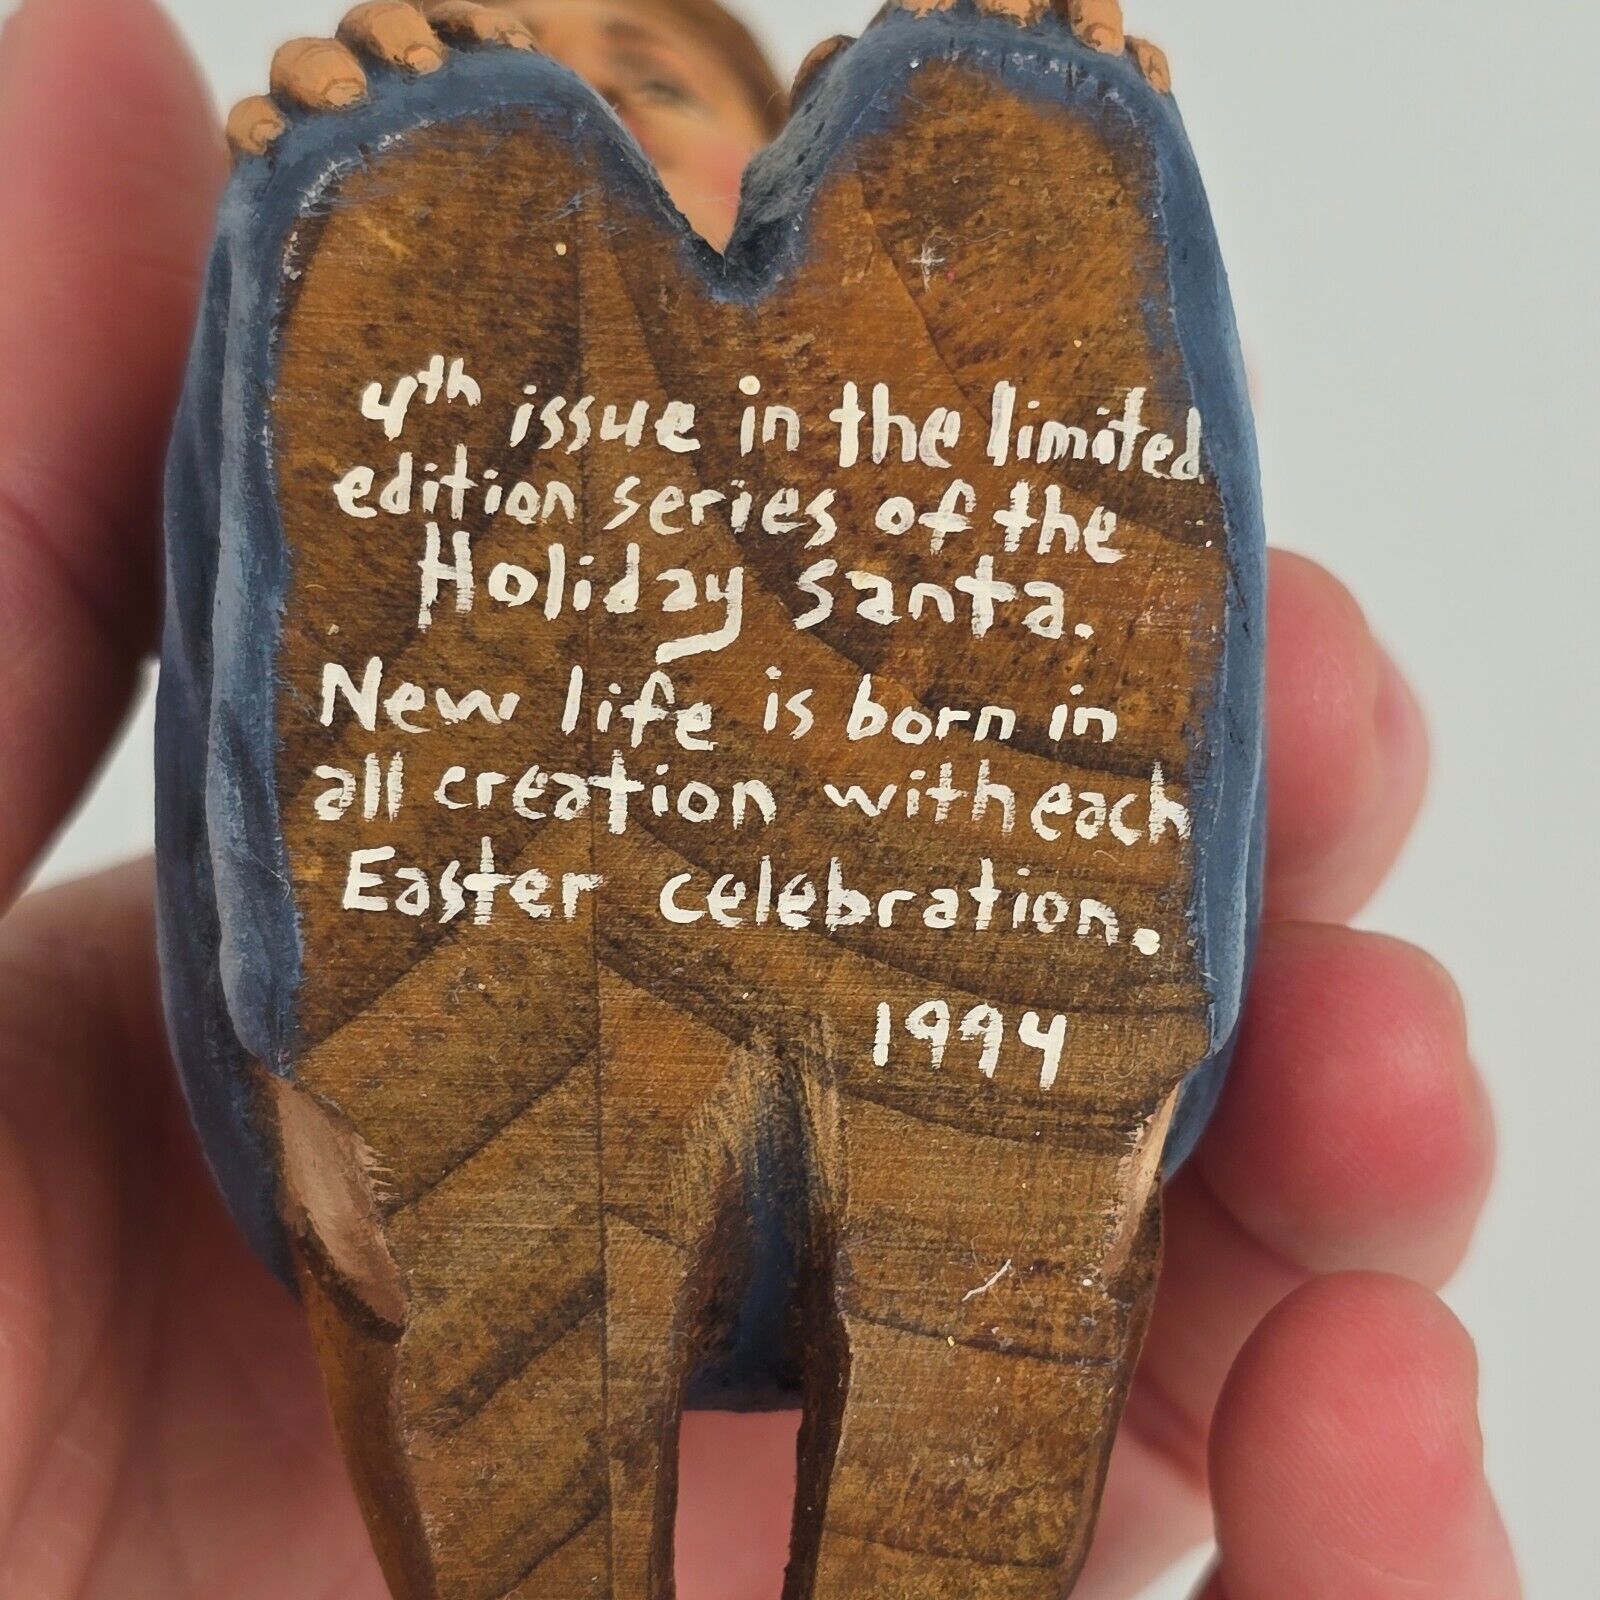 4th issue in the limited
edition series of the
Holiday Santa.
New life is born in
all creation with each
Easter celebration.
1994